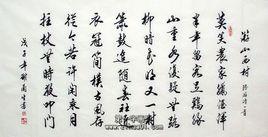 游山西村
莫笑農家臘酒渾
豐年留客足雞豚
山重水復疑無路
柳暗花明又一村
簫鼓追隨春社近
衣冠簡樸古風存
從今若許閑乘月
拄杖無時夜叩門
戊子年